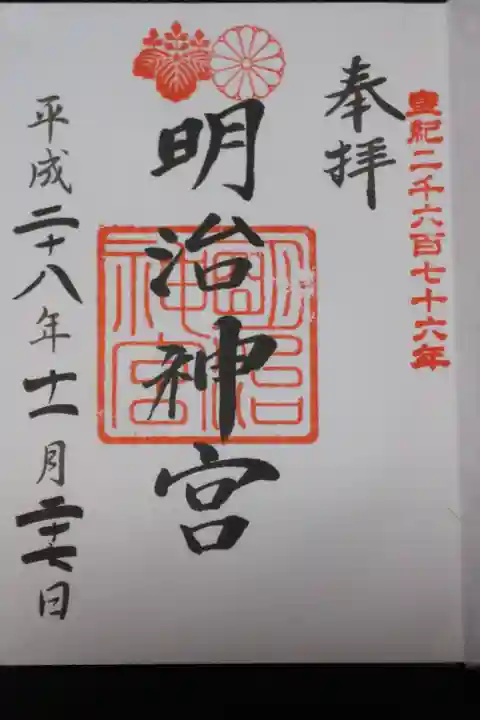 皇紀二千六百七十六年
奉拝
明治神宮
明治神宮
平成二十八年十一月二十七日